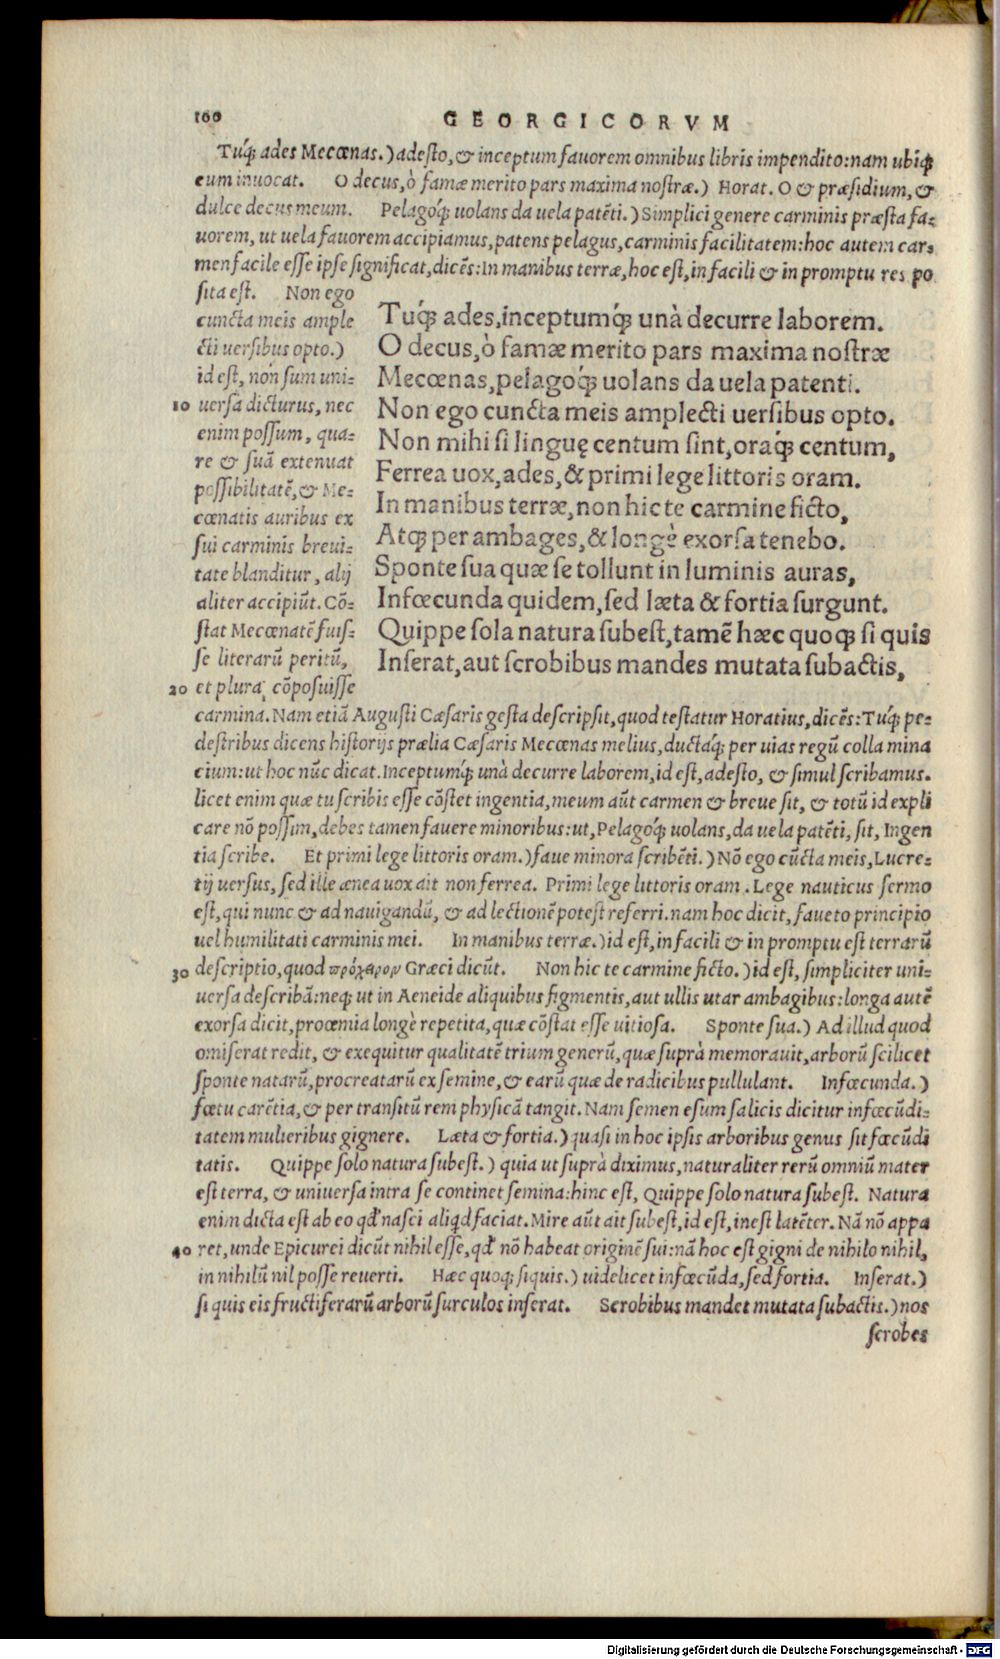 100 GEORGICORVM
Tuq́; ades Mecœnas.) adesto, & inceptum fauorem omnibus libris impendito: nam ubiq;
eum inuocat. O decus, ò famæ merito pars maxima nostræ.) Horat. O & præsidium, &
dulce decus meum. Pelagoq́; uolans da uela patẽti.) Simplici genere carminis præsta fa-
uorem, ut uela fauorem accipiamus, patens pelagus, carminis facilitatem: hoc autem car-
men facile esse ipse significat, dicẽs: In manibus terræ, hoc est, in facili & in promptu res po
sita est. Non ego
cuncta meis ample
cti uersibus opto.)
id est, non sum uni-
10 uersa dicturus, nec
enim possum, qua-
re & suã extenuat
possibilitatẽ, & Me-
cœnatis auribus ex
sui carminis breui-
tate blanditur, alij
aliter accipiũt. Cõ-
stat Mecœnatẽ fuis-
se literarũ peritũ,
20 et plura cõposuisse
Tuq́; ades, inceptumq́; unà decurre laborem.
O decus, ò famæ merito pars maxima nostræ
Mecœnas, pelagoq́; uolans da uela patenti.
Non ego cuncta meis amplecti uersibus opto.
Non mihi si linguę centum sint, oraq́; centum,
Ferrea uox, ades, & primi lege littoris oram.
In manibus terræ, non hic te carmine ficto,
Atq; per ambages, & longè exorsa tenebo.
Sponte sua quæ se tollunt in luminis auras,
Infœcunda quidem, sed læta & fortia surgunt.
Quippe sola natura subest, tamẽ hæc quoq; si quis
Inserat, aut scrobibus mandes mutata subactis,
carmina. Nam etiã Augusti Cæsaris gesta descripsit, quod testatur Horatius, dicẽs: Tuq́; pe-
destribus dicens historijs prælia Cæsaris Mecœnas melius, ductaq́; per uias regũ colla mina
cium: ut hoc nũc dicat. Inceptumq́; unà decurre laborem, id est, adesto, & simul scribamus.
licet enim quæ tu scribis esse cõstet ingentia, meum aũt carmen & breue sit, & totũ id expli
care nõ possim, debes tamen fauere minoribus: ut, Pelagoq́; uolans, da uela patẽti, sit, Ingen
tia scribe. Et primi lege littoris oram.) faue minora scribẽti.) Nõ ego cũcta meis, Lucre-
tij uersus, sed ille ænea uox ait non ferrea. Primi lege littoris oram. Lege nauticus sermo
est, qui nunc & ad nauigandũ, & ad lectionẽ potest referri. nam hoc dicit, faueto principio
uel humilitati carminis mei. In manibus terræ.) id est, in facili & in promptu est terrarũ
30 descriptio, quod πρόχειρον Græci dicũt. Non hic te carmine ficto.) id est, simpliciter uni-
uersa describã: neq; ut in Aeneide aliquibus figmentis, aut ullis utar ambagibus: longa autẽ
exorsa dicit, prooemia longè repetita, quæ cõstat esse uitiosa. Sponte sua.) Ad illud quod
omiserat redit, & exequitur qualitatẽ trium generũ, quæ suprà memorauit, arborũ scilicet
sponte natarũ, procreatarũ ex semine, & earũ quæ de radicibus pullulant. Infœcunda.)
fœtu carẽtia, & per transitũ rem physicã tangit. Nam semen esum salicis dicitur infœcũdi-
tatem mulieribus gignere. Læta & fortia.) quasi in hoc ipsis arboribus genus sit fœcũdi
tatis. Quippe solo natura subest.) quia ut suprà diximus, naturaliter rerũ omniũ mater
est terra, & uniuersa intra se continet semina: hinc est, Quippe solo natura subest. Natura
enim dicta est ab eo qd' nasci aliqd faciat. Mire aũt ait subest, id est, inest latẽter. Nã nõ appa
40 ret, unde Epicurei dicũt nihil esse, qd' nõ habeat originẽ sui: nã hoc est gigni de nihilo nihil,
in nihilũ nil posse reuerti. Hæc quoq; siquis.) uidelicet infœcũda, sed fortia. Inserat.)
si quis eis fructiferarũ arborũ surculos inserat. Scrobibus mandet mutata subactis.) nos
scrobes
Digitalisierung gefördert durch die Deutsche Forschungsgemeinschaft - DFG